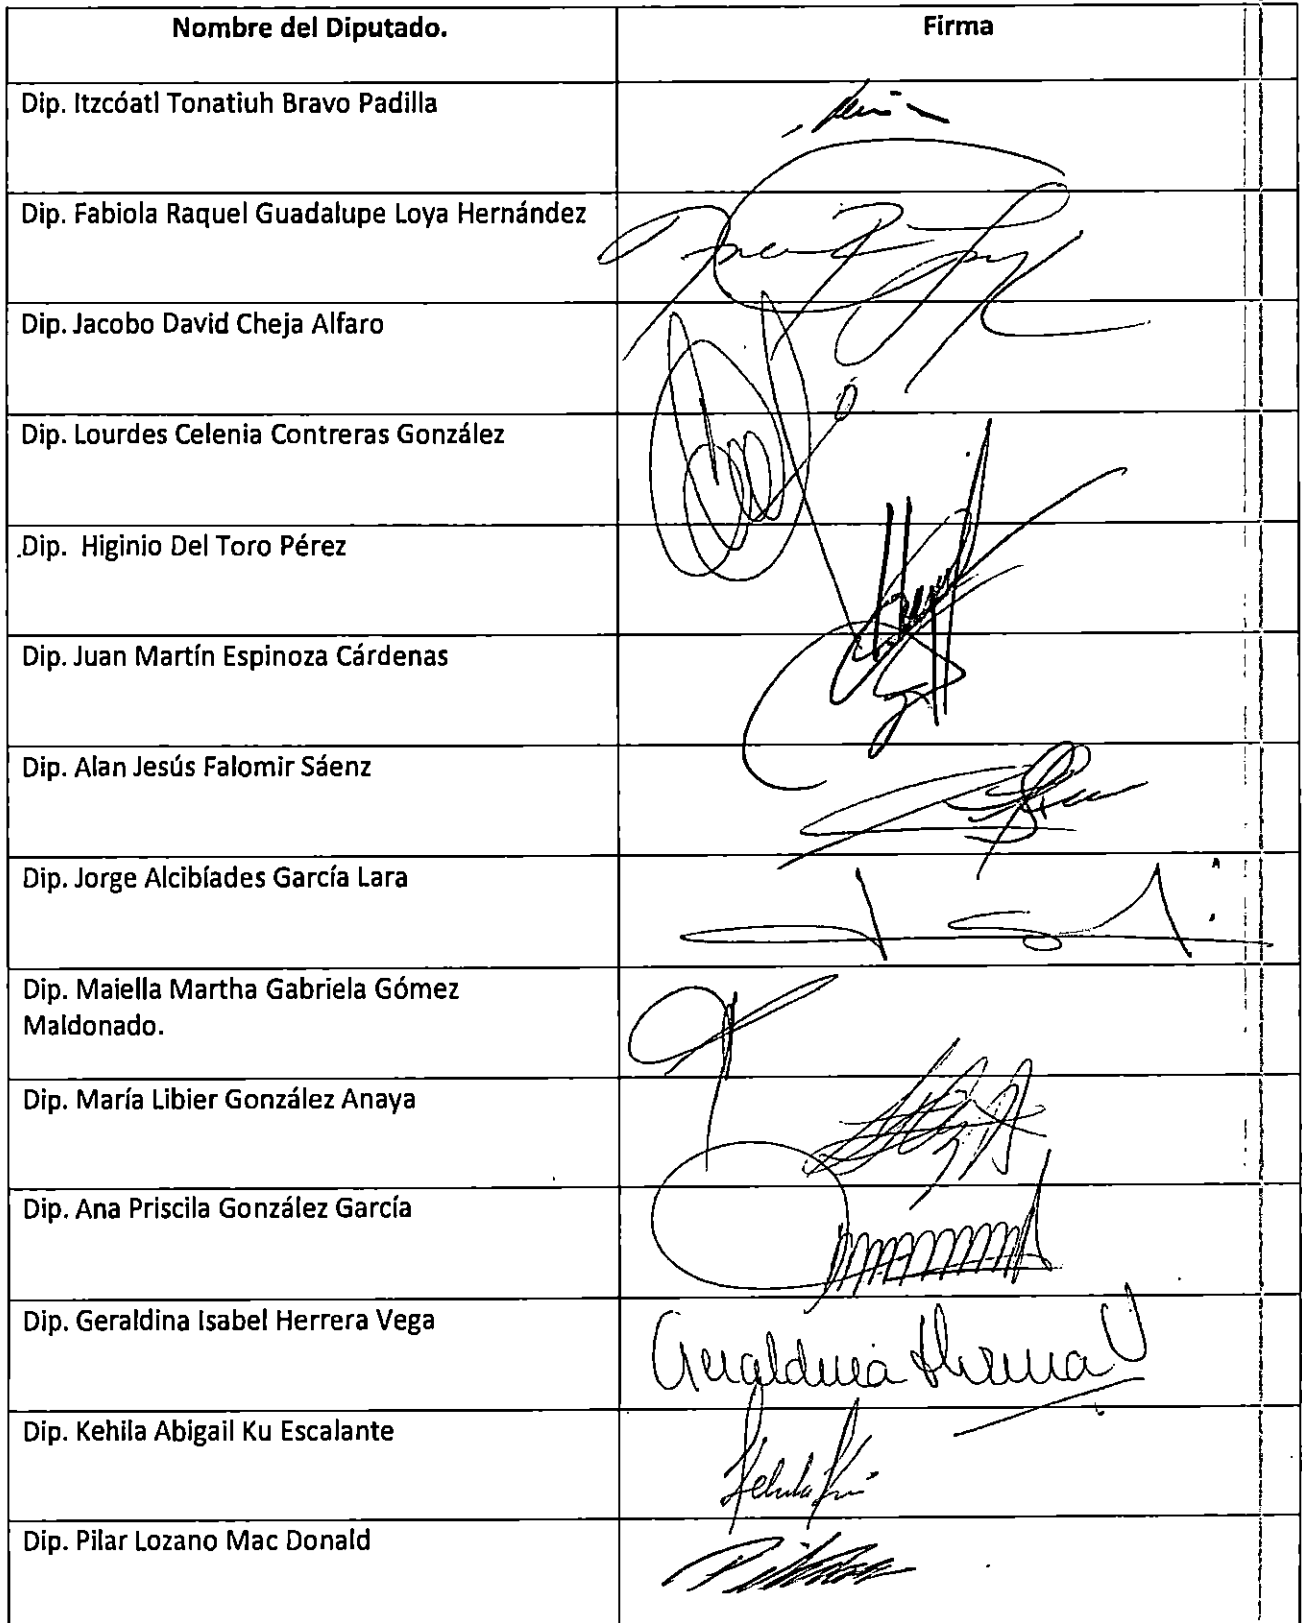 Nombre del Diputado.
Firma
Dip. Itzcóatl Tonatiuh Bravo Padilla
Dip. Fabiola Raquel Guadalupe Loya Hernández
Dip. Jacobo David Cheja Alfaro
Dip. Lourdes Celenia Contreras González
Dip. Higinio Del Toro Pérez
Dip. Juan Martín Espinoza Cárdenas
Dip. Alan Jesús Falomir Sáenz
Dip. Jorge Alcibíades García Lara
Dip. Maiella Martha Gabriela Gómez
Maldonado.
Dip. María Libier González Anaya
Dip. Ana Priscila González García
Dip. Geraldina Isabel Herrera Vega
Geraldina Herrera V
Dip. Kehila Abigail Ku Escalante
Kehila Ku
Dip. Pilar Lozano Mac Donald